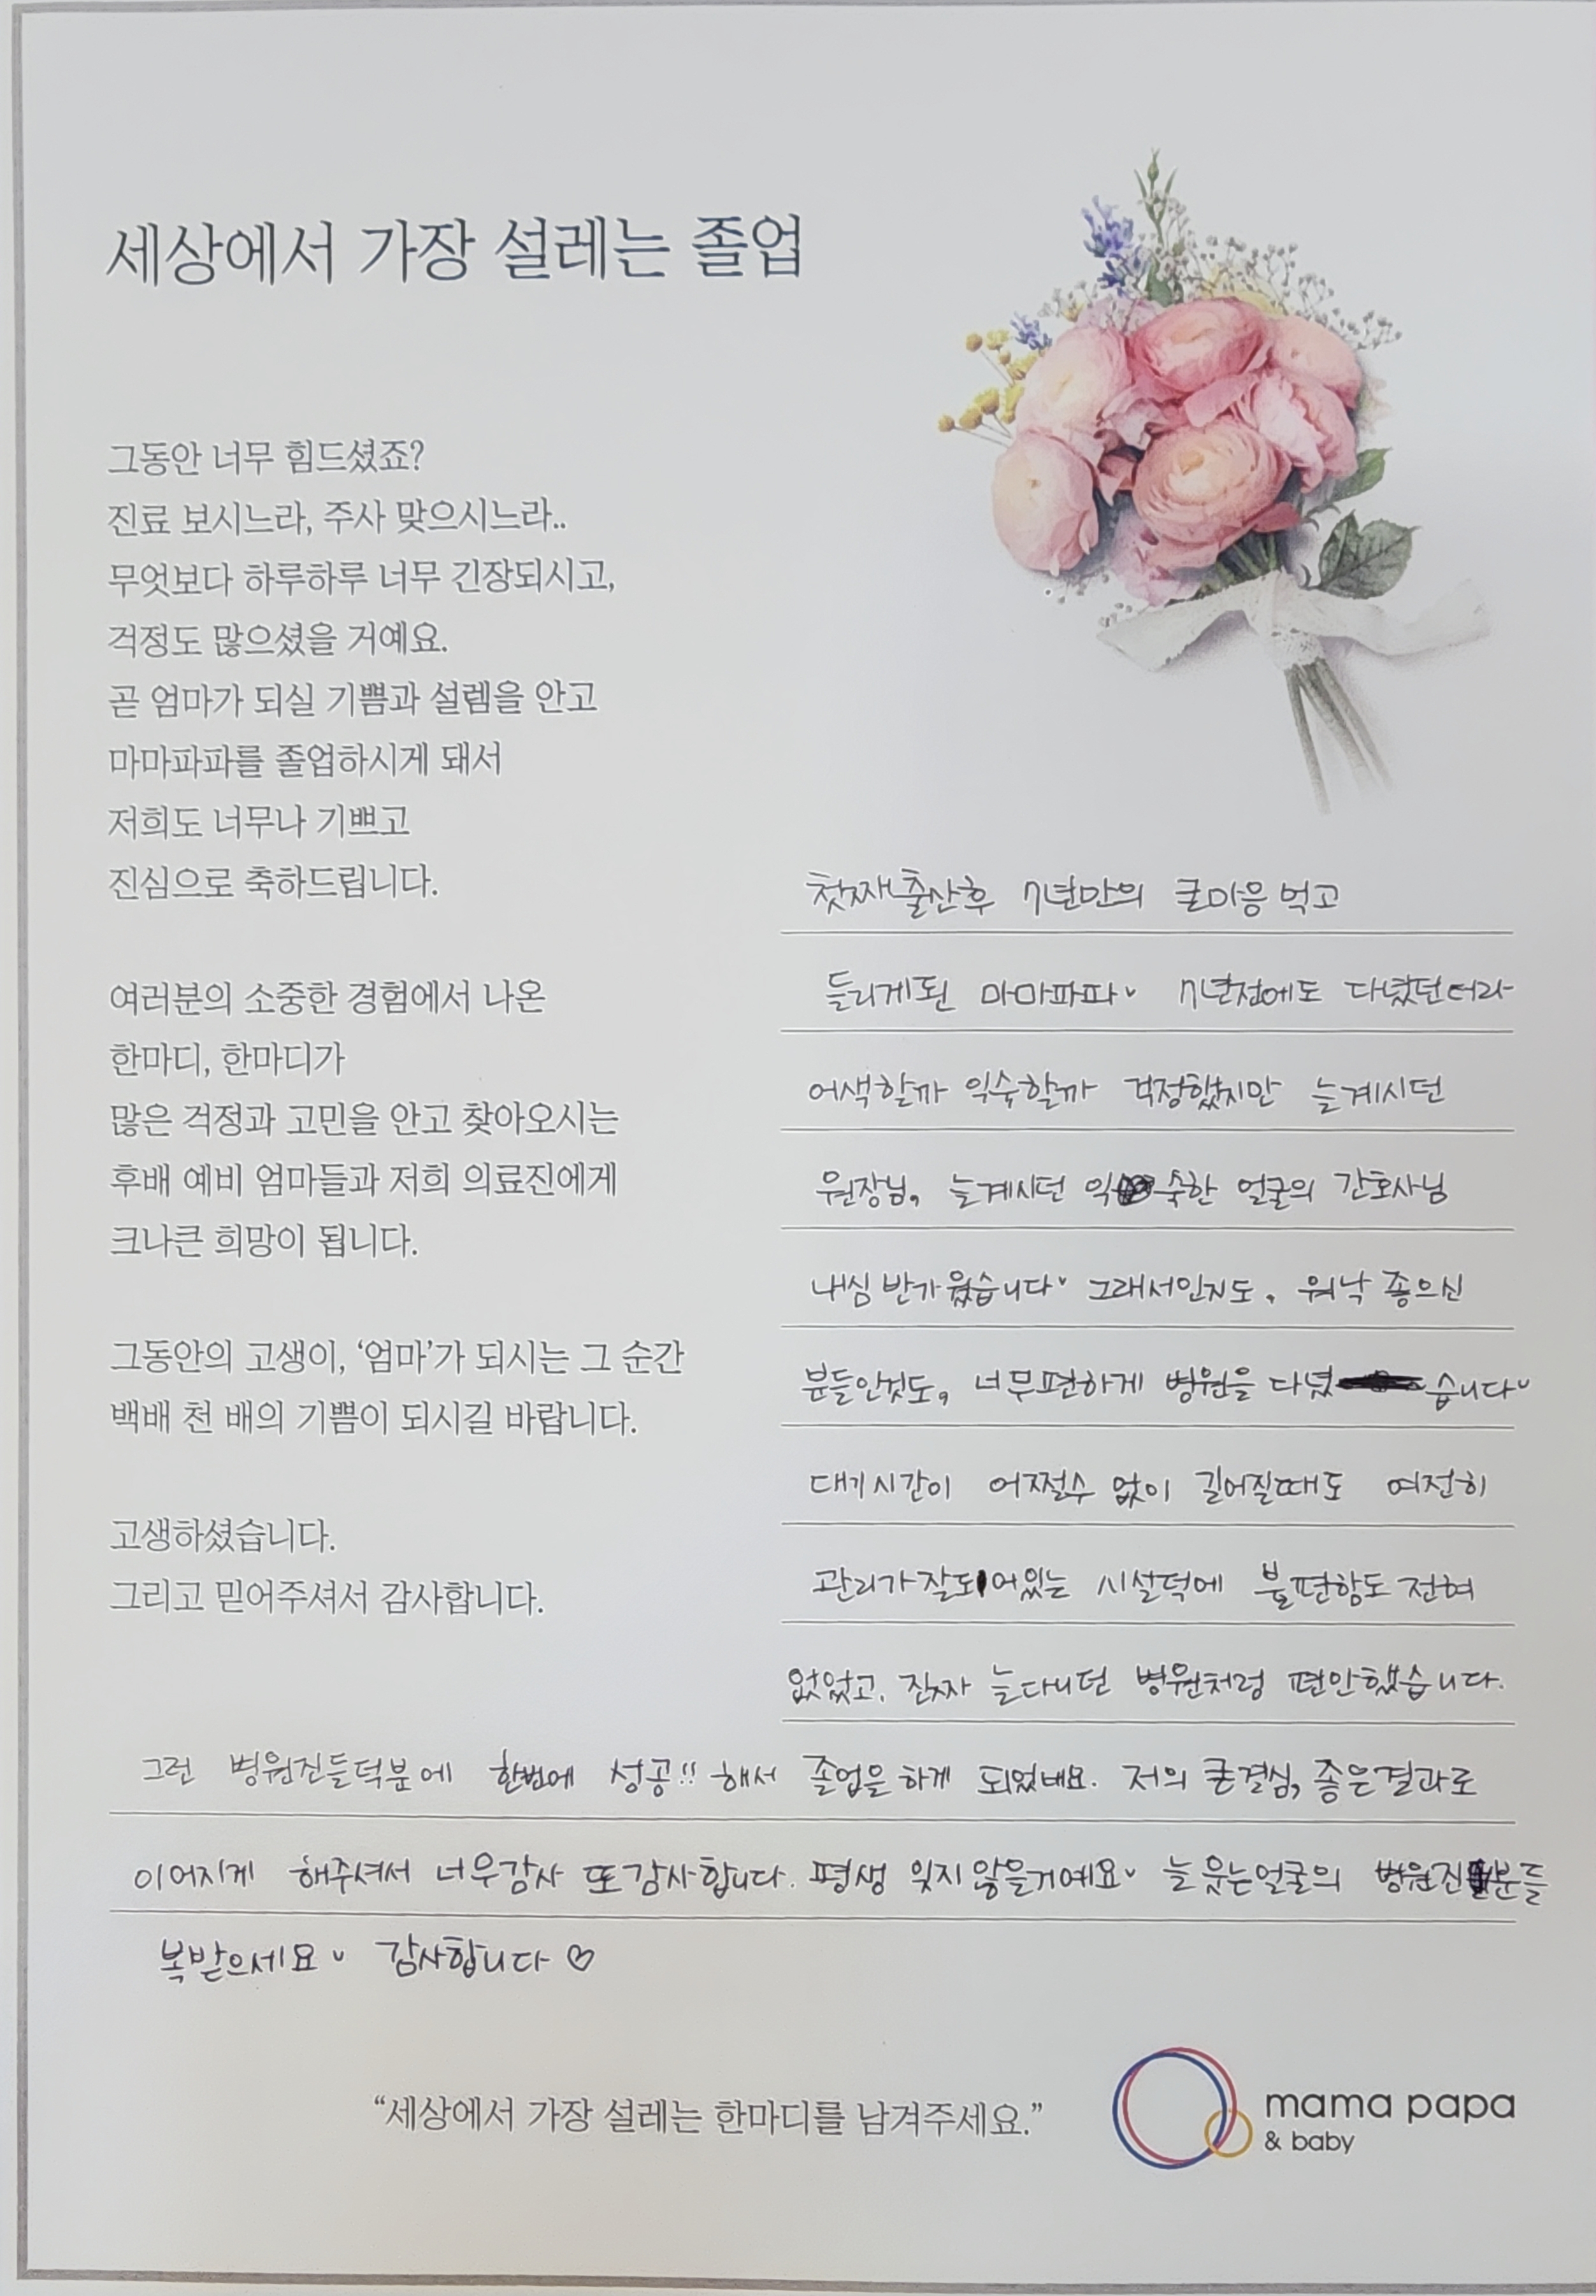 세상에서 가장 설레는 졸업
그동안 너무 힘드셨죠?
진료 보시느라, 주사 맞으시느라..
무엇보다 하루하루 너무 긴장되시고,
걱정도 많으셨을 거예요.
곧 엄마가 되실 기쁨과 설렘을 안고
마마파파를 졸업하시게 돼서
저희도 너무나 기쁘고
진심으로 축하드립니다.
여러분의 소중한 경험에서 나온
한마디, 한마디가
많은 걱정과 고민을 안고 찾아오시는
후배 예비 엄마들과 저희 의료진에게
크나큰 희망이 됩니다.
그동안의 고생이, ‘엄마’가 되시는 그 순간
백배 천 배의 기쁨이 되시길 바랍니다.
고생하셨습니다.
그리고 믿어주셔서 감사합니다.
첫째출산후 7년만의 큰마음 먹고
들리게된 마마파파˅ 7년전에도 다녔던터라
어색할까 익숙할까 걱정했지만 늘계시던
원장님, 늘계시던 익숙한 얼굴의 간호사님
내심 반가웠습니다˅ 그래서인지도, 워낙 좋으신
분들인것도, 너무편하게 병원을 다녔습니다˅
대기시간이 어쩔수 없이 길어질때도 여전히
관리가잘되어있는 시설덕에 불편함도 전혀
없었고, 진짜 늘다니던 병원처럼 편안했습니다.
그런 병원진들덕분에 한번에 성공!! 해서 졸업을하게 되었네요. 저의 큰결심, 좋은결과로
이어지게 해주셔서 너무감사 또감사합니다. 평생 잊지않을거예요˅ 늘웃는얼굴의 병원진분들
복받으세요˅ 감사합니다♡
“세상에서 가장 설레는 한마디를 남겨주세요.”
mama papa
& baby